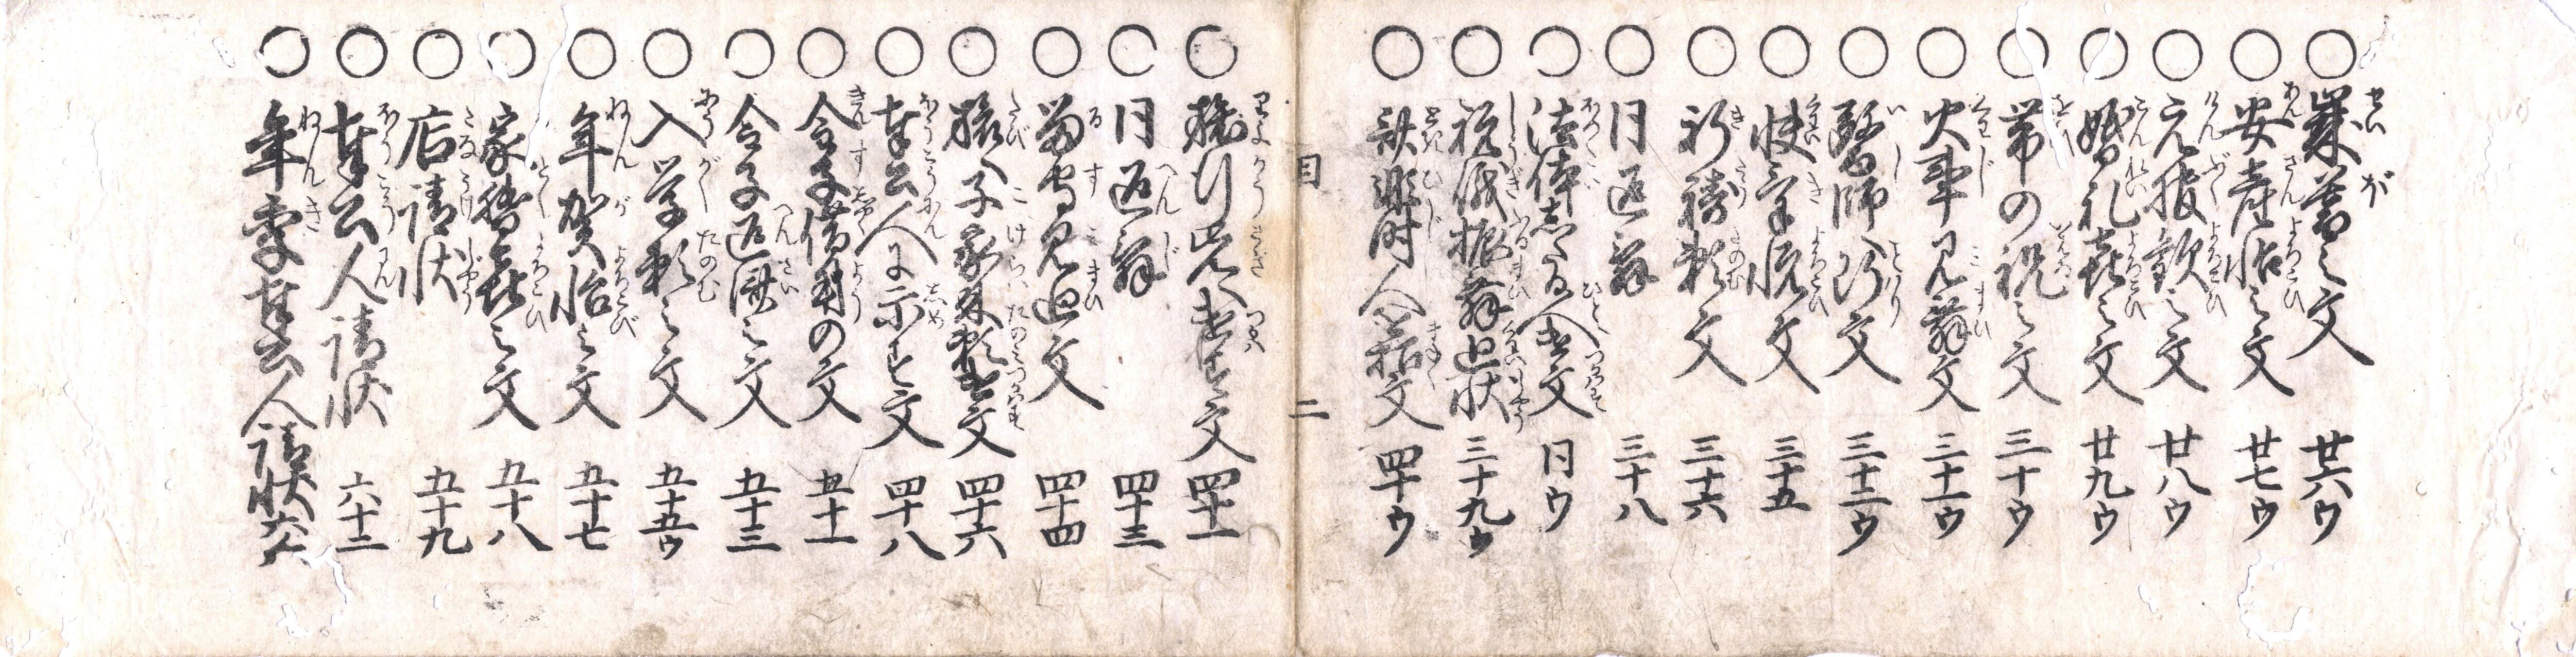 ○歳暮之文 廿六ウ
○安産怡之文 廿七ウ
○元服歓之文 廿八ウ
○婚礼喜之文 廿九ウ
○帯の祝之文 三十ウ
○火事見舞文 三十一ウ
○醫師断文 三十二ウ
○快気悦文 三十五
○祈祷頼文 三十六
○同返翰 三十八
○法体する人遣文 同ウ
○祝儀振舞廻状 三十九ウ
○斎非時人招文 四十ウ
目 二
○旅行先へ遣す文 四十一
○同返翰 四十三
○留守見廻文 四十四
○旅へ子家来頼遣文 四十六
○奉公人に示す文 四十八
○金子借用の文 五十一
○金子返済之文 五十三
○入学頼之文 五十五ウ
○年賀怡之文 五十七
○家督喜之文 五十八
○店請状 五十九
○奉公人請状 六十二
○年季奉公人請状